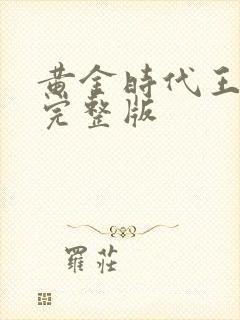 黄金時代王
完整版
羅莊